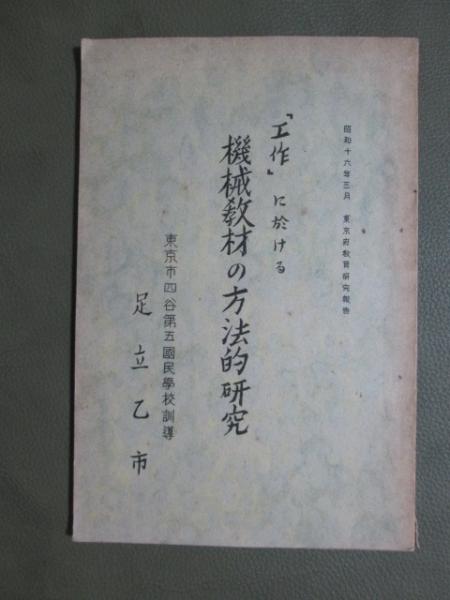 昭和十六年三月 東京府教育研究報告
「工作」に於ける
機械教材の方法的研究
東京市四谷第五國民學校訓導
足立乙市